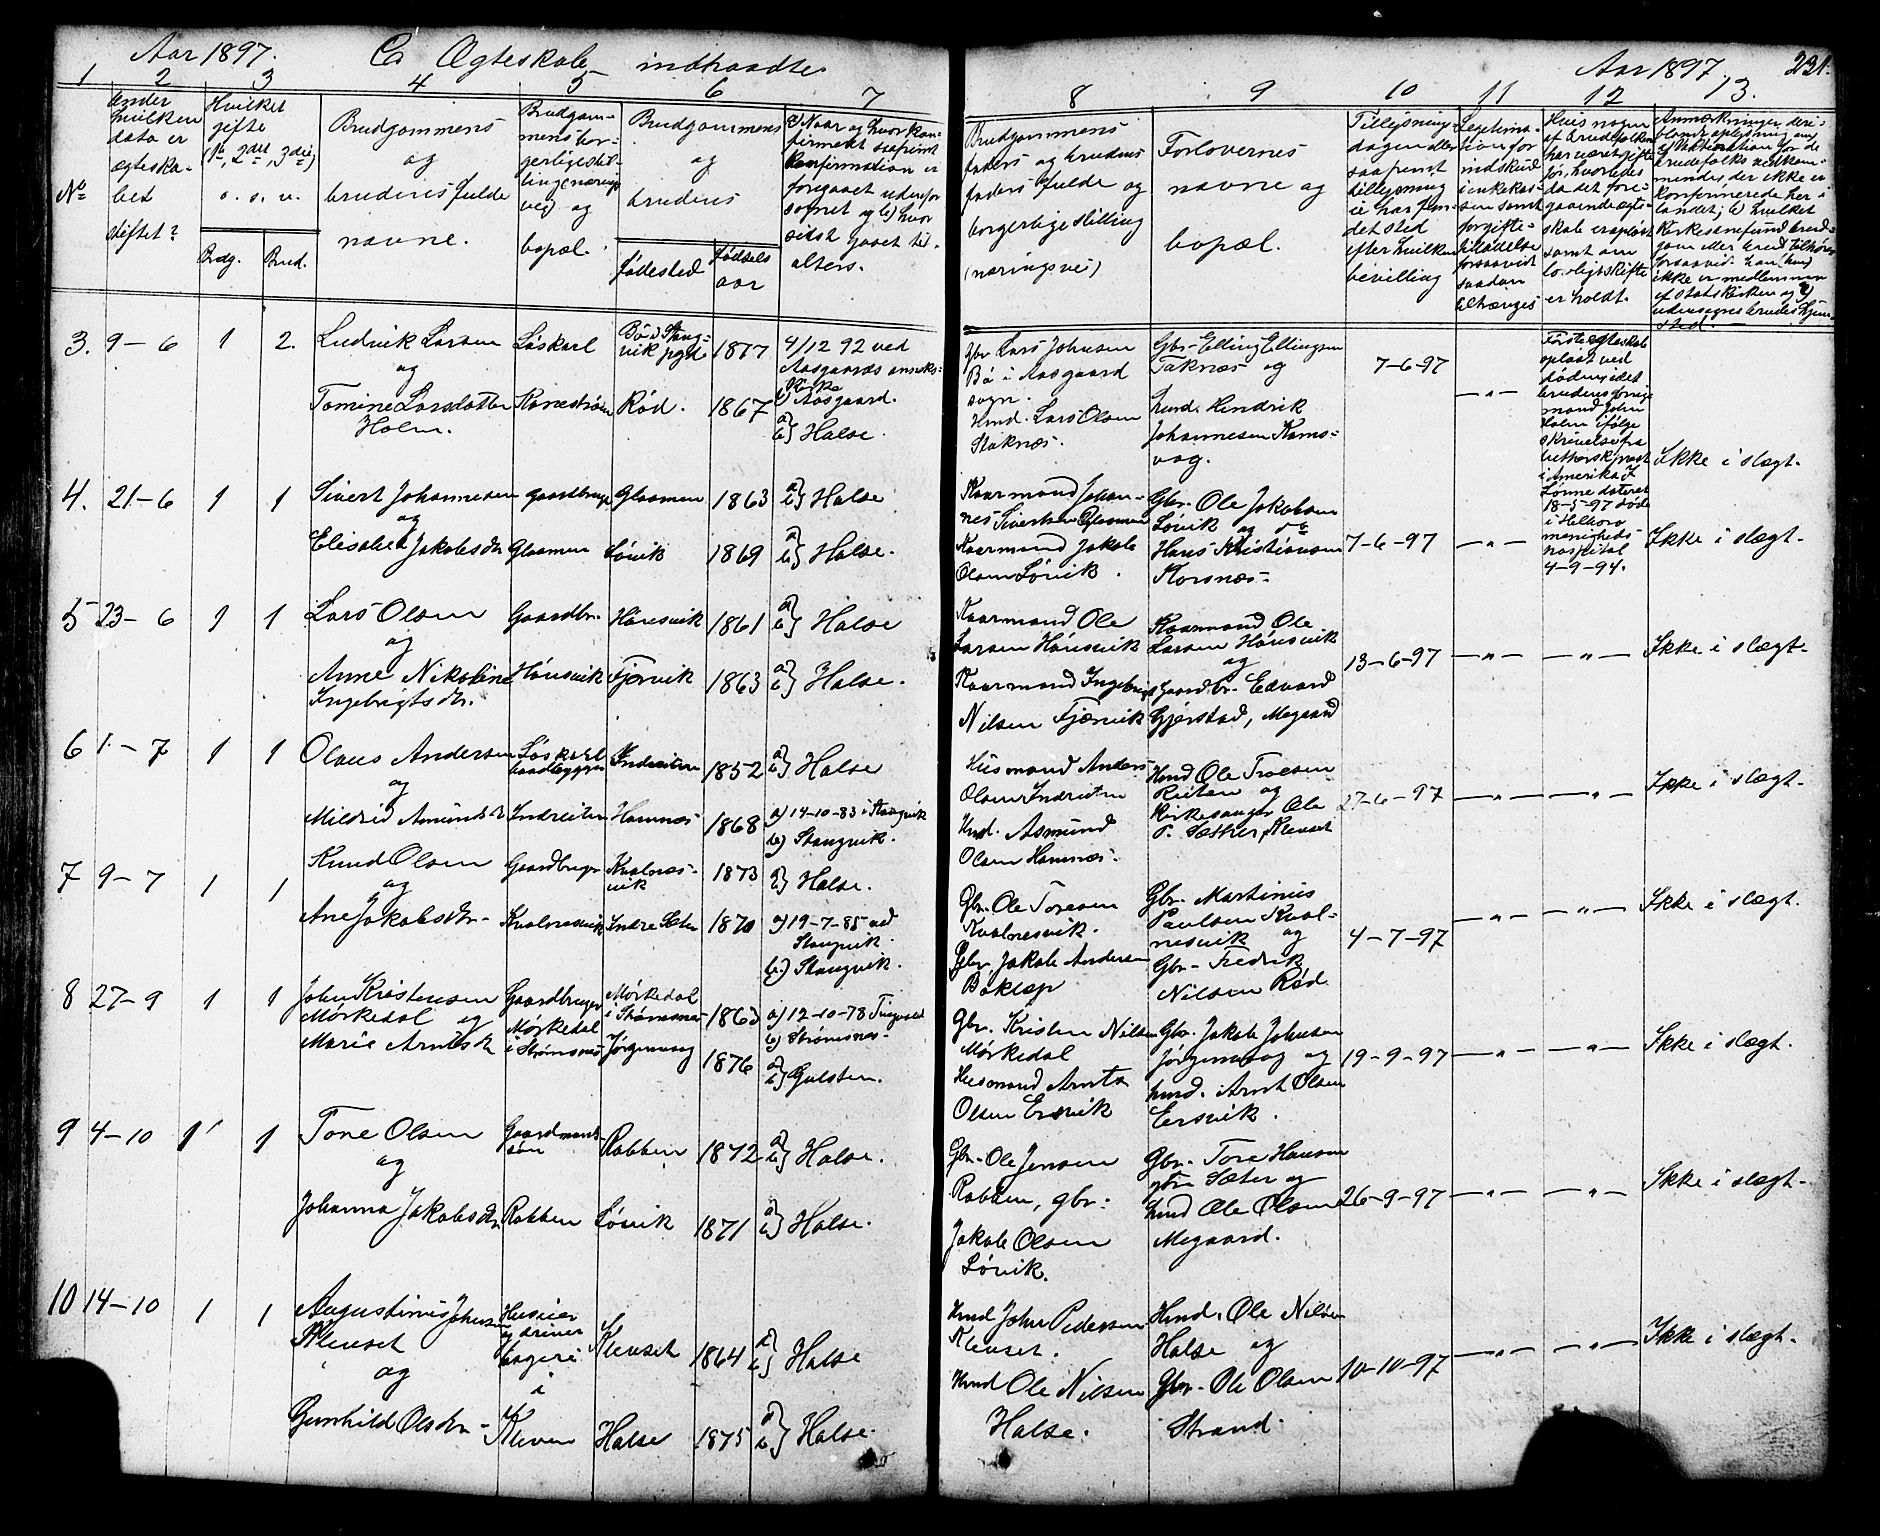 Aar 1897. C. Ægteskab indtraadte. Aar 1897. 221.
1 2 3 4 5 6 7 8 9 10 11 12 13.
No
Under hvilken dato er ægteskabet stiftet?
Hvilket gifte (1ste, 2det, 3die) o. s. v.
Brdg. Brud.
Brudgommens og brudens fulde navne.
Brudgommens borgerlige stilling (næringsvei) og bopæl.
Brudgommens og brudens
fødested
fødselsaar
Naar og hvor konfirmeret saafremt konfirmation er foregaaet udenfor sognet og b) hvor sidst gaaet til alters.
Brudgommens faders og brudens faders fulde og borgerlige stilling (næringsvei)
Forlovernes navne og bopæl.
Tillysningsdagen eller saafremt tillysning ei har fundet sted efter hvilken bevilling
Hvis nogen af brudefolkene har været gift før, hvorledes da det foregaaende ægteskab er opløst samt om lovligt skifte er holdt.
3. 9–6 1 2.
Ludvik Larsen
og
Tomine Larsdatter
Holm.
Løskarl
Bø i Stangvik pgd 1877
Rød. 1867
4/12 92 ved
Aasgaards anneks-
kirke
b) Aasgaard.
a) b) } Halse.
Gbr Lars Johnsen
Bø i Aasgaard
sogn.
Hmd. Lars Olsen
Staknæs.
Gbr. Elling Ellingsen
Taknæs og
husd. Hendrik
Johannesen Kams-
vag.
7–6–97
— „ —
Første ægteskab
opløst ved
døden, idet
brudens forrige
mand John
Holm ifølge
skrivelse fra
luthersk prest
i Amerika
Lønne dateret
18–5–97 døde
4–9–94.
Ikke i slægt.
4. 21–6 1 1
Sivert Johannesen
og
Elisabet Jakobsdtr
Gaardbruger
Glaamen
Glaamen 1863
Løvik 1869
a) b) } Halse
a) b) } Halse.
Kaarmand Johan-
nes Sivertsen Glaamen
Kaarmand Jakob
Olsen Løvik.
Gbr. Ole Jakobsen
Løvik og do
Hans Kristiansen
Korsnæs.
7–6–97
— „ —
Ikke i slægt.
5 23–6 1 1
Lars Olsen
og
Anne Nikoline
Ingebrigtsdtr.
Gaardbr.
Hønsvik
Hønsvik 1861
Fjærvik 1863
a) b) } Halse
a) b) } Halse.
Kaarmand Ole
Larsen Hønsvik
Kaarmand Ingebrigt
Nilsen Fjærvik
Kaarmand Ole
Larsen Hønsvik
og
Gaardbr. Edvard
Gjerstad, Megaard
13–6–97
— „ — — „ —
Ikke i slægt.
6 1.–7 1 1
Olaus Andersen
og
Mildrid Asmundsdtr
Løskarl
baadbygger
Indreiten
Indreiten 1852
Hamnæs 1868
a) b) } Halse
a) 14–10–83 i Stangvik
b) Stangvik.
Husmand Anders
Olsen Indreiten
Hmd. Asmund
Olsen Hamnæs.
Hmd Ole Troesen
Reiten og
Kirkesanger Ole
P. Sæther, Klevset
27–6–97
— „ — — „ —
Ikke i slægt.
7 9–7 1 1
Knud Olsen
og
Ane Jakobsdtr.
Gaardbruger
Kvalnesvik
Kvalnæs-
vik 1873
Indre Sæter 1870
a) b) } Halse.
a) 19–7–85 ved
Stangvik.
b.) Stangvik.
Gbr. Ole Toresen
Kvalnesvik.
Gbr. Jakob Andersen
Bøklep
Gbr. Martinus
Paulsen Kval-
nesvik og
Gbr. Fredrik
Nilsen Rød.
4–7–97
— „ — — „ —
Ikke i slægt.
8 27–9 1 1
John Kristensen
Mørkedal og
Marie Arntsdtr
Gaardbruger
Mørkedal
i Strømsnæs
Mørkedal
i Strømsnæs 1863
Jørgenvag 1876
a) 12–10–78 Tingvold
b) Strømsnæs.
a) b) } Gulsten.
Gbr. Kristen Nilsen
Mørkedal
Husmand Arnt
Olsen Ersvik
Gbr. Jakob Johnsen
Jørgenvag og
husd. Arnt Olsen
Ersvik.
19–9–97
— „ — — „ —
Ikke i slægt.
9 4–10 1 1
Tore Olsen
og
Johanna Jakobsdtr.
Gaardmands-
søn
Rabben
Rabben 1872
Løvik 1871
a) b) } Halse.
a) b) } Halse.
Gbr. Ole Jensen
Rabben, gbr.
Jakob Olsen
Løvik.
Gbr. Tore Hansen
ytre Sæter og
husd Ole Olsen
Megaard.
26–9–97
— „ — — „ —
Ikke i slægt.
10 14–10 1 1
Augustinus Johnsen
Klevset
og
Gunhild Olsdtr.
Huseier
og driver
bageri
i
Kleven
Klevset 1864
Halse 1875
a) b) } Halse
a) b) } Halse.
Hmd John Pedersen
Klevset.
Hmd Ole Nilsen
Halse.
Hmd. Ole Nilsen
Halse og
Gbr. Ole Olsen
Strand.
10–10–97
— „ — — „ —
Ikke i slægt.